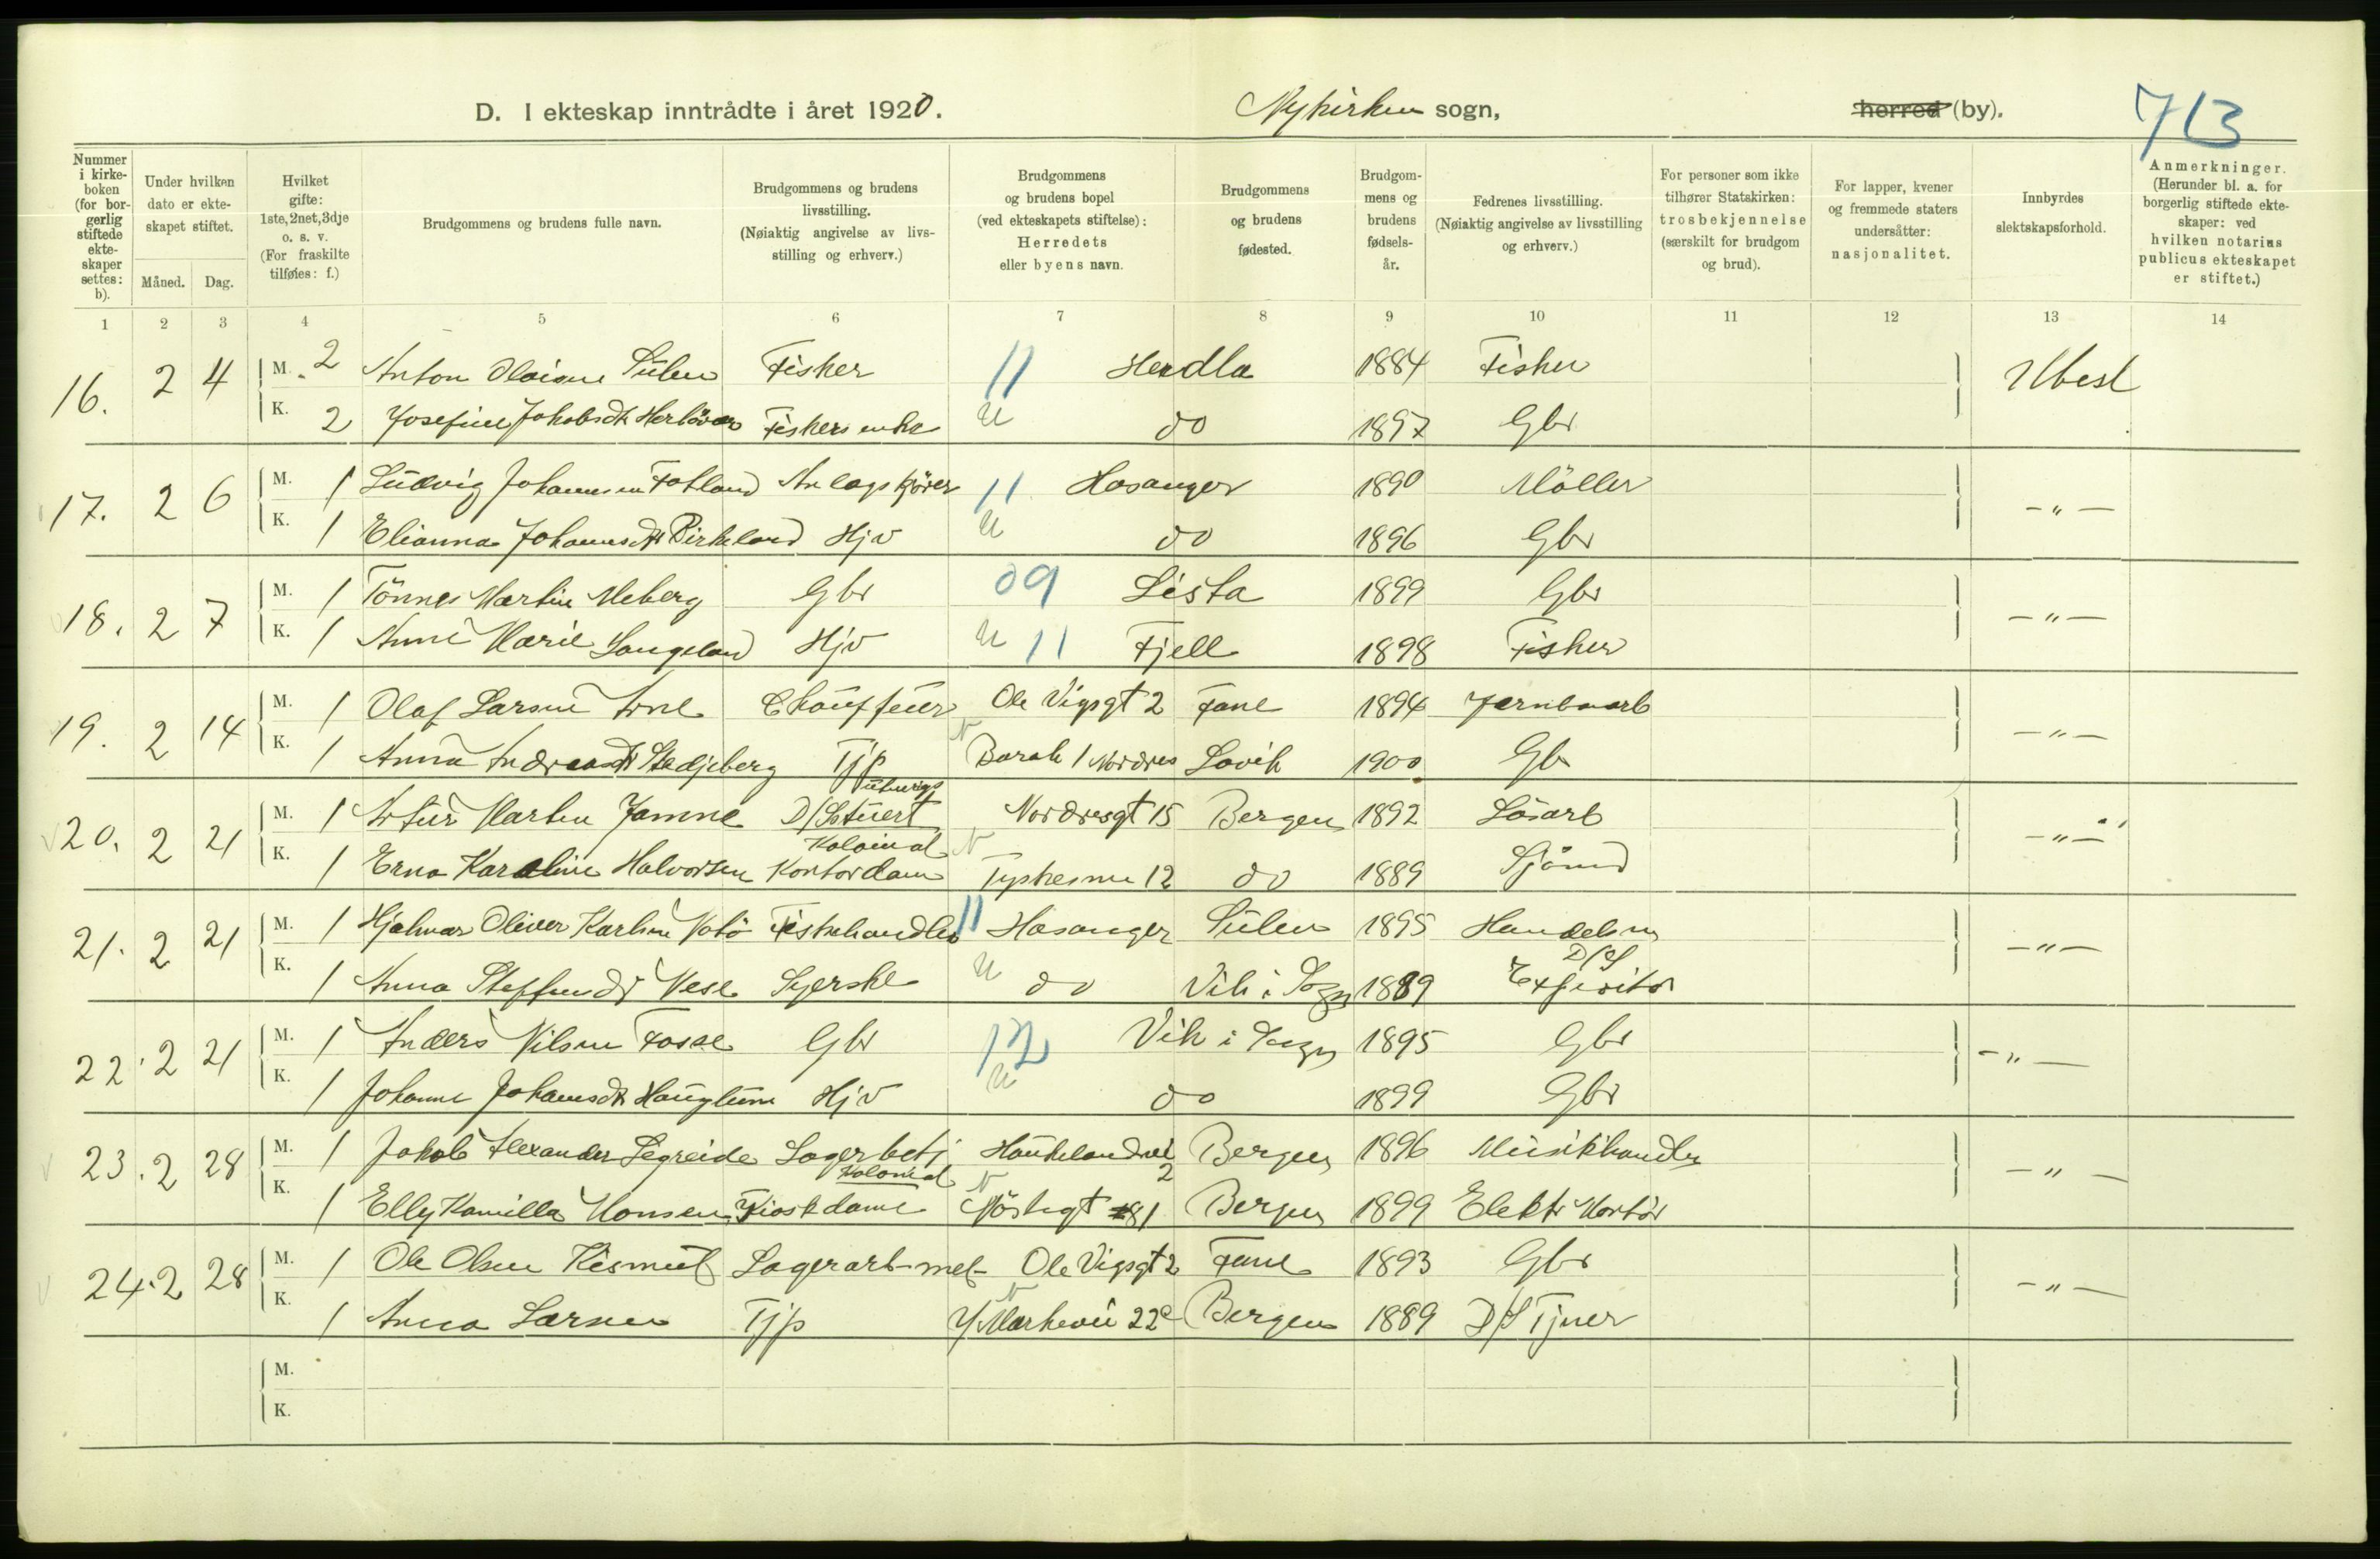 D. I ekteskap inntrådte i året 1920. Nykirken sogn, herred (by). 713
Nummer i kirkeboken (for borgerlig stiftede ekteskaper settes: b).
Under hvilken dato er ekteskapet stiftet.
Måned. Dag.
Hvilket gifte: 1ste, 2net, 3dje o. s. v. (For fraskilte tilføies: f.)
Brudgommens og brudens fulle navn.
Brudgommens og brudens livsstilling. (Nøiaktig angivelse av livsstilling og erhverv.)
Brudgommens og brudens bopel (ved ekteskapets stiftelse): Herredets eller byens navn.
Brudgommens og brudens fødested.
Brudgommens og brudens fødselsår.
Fedrenes livsstilling. (Nøiaktig angivelse av livsstilling og erhverv.)
For personer som ikke tilhører Statskirken: trosbekjennelse (særskilt for brudgom og brud).
For lapper, kvener og fremmede staters undersåtter: nasjonalitet.
Innbyrdes slektskapsforhold.
Anmerkninger. (Herunder bl. a. for borgerlig stiftede ekteskaper: ved hvilken notarius publicus ekteskapet er stiftet.)
1 2 3 4 5 6 7 8 9 10 11 12 13 14
16. 2 4 M. 2 Anton Oloisen Sulen Fisker 11 Herdla 1884 Fisker Ubesl
K. 2 Josefine Jakobsdt Fiskers enke u do 1897 Gbr
17. 2 6 M. 1 Ludvig Johannesen Fotland Anlagskjörer 11 Hosanger 1890 Möller -"-
K. 1 Elianna Johannesdt Birkeland Hjv u do 1896 Gbr
18. 2 7 M. 1 Tönnes Martin Meberg Gbr 09 Lista 1899 Gbr -"-
K. 1 Anne Marie Langeland Hjv u 11 Fjell 1898 Fisker
19. 2 14 M. 1 Olaf Larsen Chauffeur Ole Vigsgt 2 Fane 1894 Jernbarb -"-
K. 1 Anna Andreasdt Stedjeberg Tjp Barak 1 Nordnes Lavik 1900 Gbr
20. 2 21 M. 1 Artur Martin Jamne D/S Stuert Nordnesgt 15 Bergen 1892 Lösarb -"-
K. 1 Erna Karoline Halvorsen Kolonial Kontordame Tyskesmu 12 do 1889 Sjömd
21. 2 21 M. 1 Hjalmar Oliver Karlsen Fiskehandler 11 Hosanger Sulen 1895 Handelsm -"-
K. 1 Anna Steffensdt Vese Syerske u do Vik i Sogn 1889 D/S Expeditör
22. 2 21 M. 1 Anders Nilsen Fosse Gbr 12 Vik i Sogn 1895 Gbr -"-
K. 1 Johanne Johannesdt Hauglum Hjv u do 1899 Gbr
23. 2 28 M. 1 Jakob Alexander Segreide Lagerbetj Haukelandsvei 2 Bergen 1896 Musikhandler -"-
K. 1 Elly Kamilla Monsen Kolonial Kioskdame Nöstegt 81 Bergen 1899 Elektr Montör
24. 2 28 M. 1 Ole Olsen Kismul Lagerarb mel Ole Vigsgt 2 Fane 1893 Gbr -"-
K. 1 Anna Larsen Tjp Y Markevei 22c Bergen 1889 D/S Tjner
M.
K.